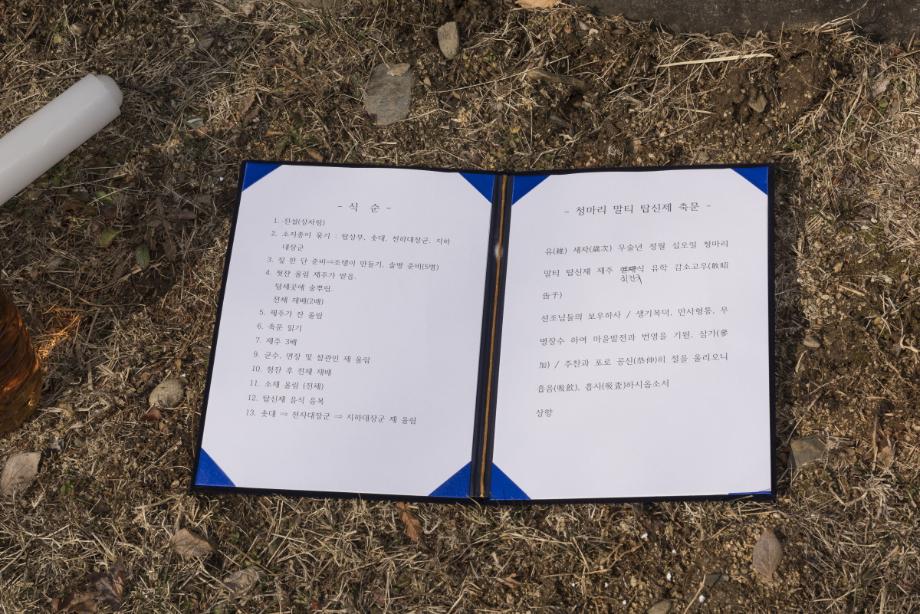 - 식 순 -
1. 진설(상차림)
2. 소지종이 묶기 : 탑상부, 솟대, 천하대장군, 지하
대장군
3. 짚 한 단 준비⇒조랭이 만들기, 술병 준비(5병)
4. 첫잔 올림 제주가 맡음.
탑세곳에 술뿌림.
전체 재배(2배)
5. 제주가 잔 올림
6. 축문 읽기
7. 제주 3배
9. 군수, 면장 및 기관민 제 올림
10. 헌잔 후 전체 재배
11. 소제 올림 (전체)
12. 탑신제 음식 음복
13. 솟대 ⇒ 천하대장군 ⇒ 지하대장군 제 올림
- 청마리 말티 탑신제 축문 -
유(維) 세차(歲次) 무술년 정월 십오일 청마리
말티 탑신제 제주 유학 감소고우(敢昭
告于)
선조님들의 보우하사 / 생기복덕, 만사형통, 무
병장수 하여 마을발전과 번영을 기원, 삼가(參
加) / 주찬과 포로 공신(恭伸)히 절을 올리오니
흡음(吸飮), 흡사(吸査)하시옵소서
상향